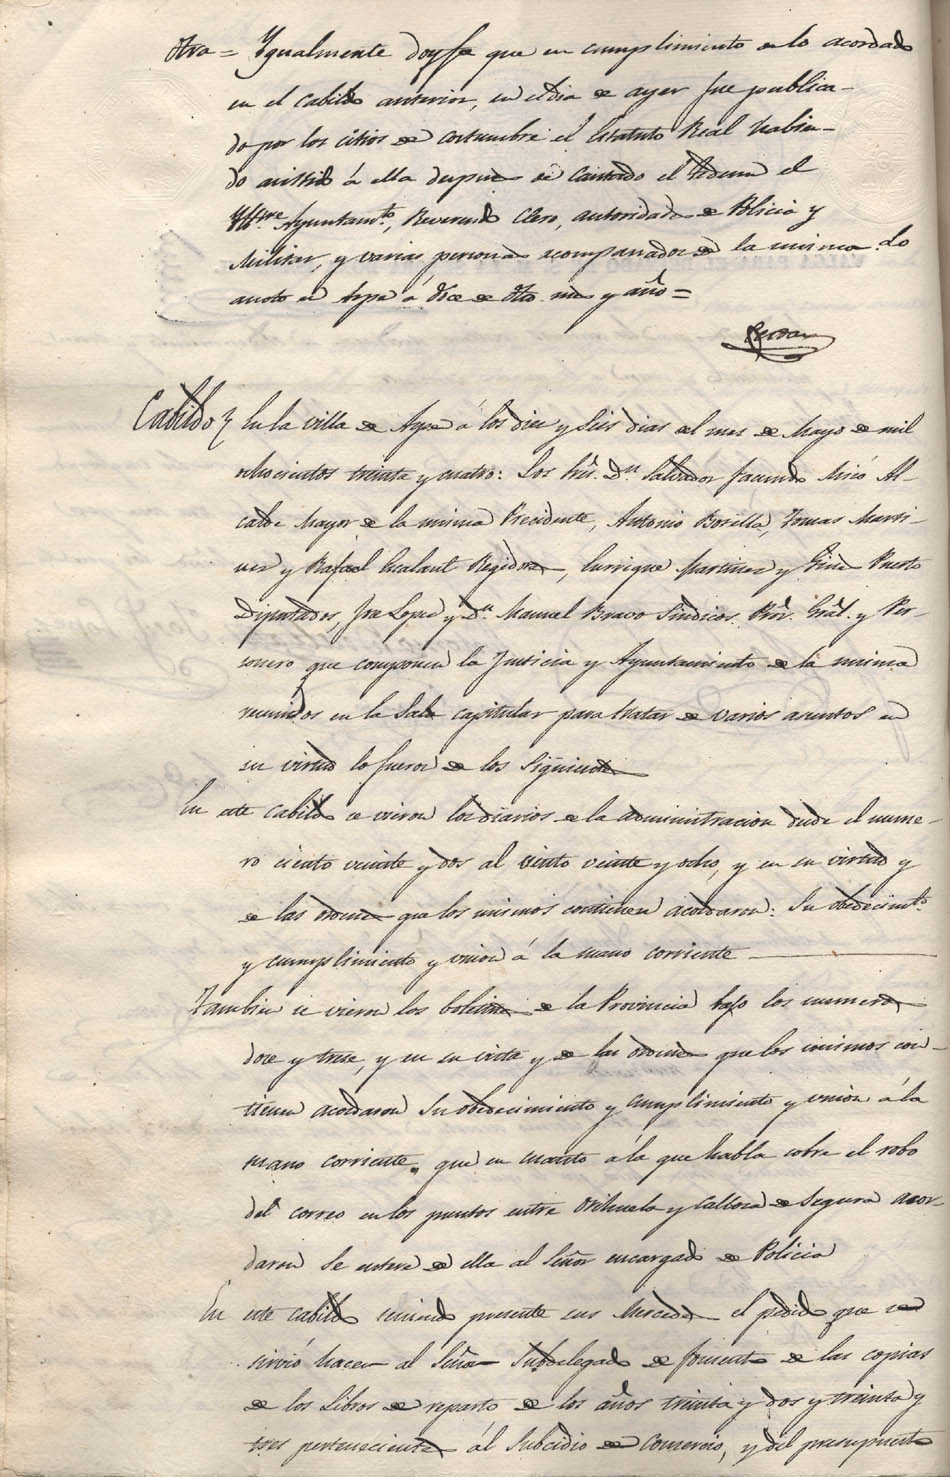 Otra = Ygualmente doy fe que en cumplimiento de lo acordado
en el Cabildo anterior, en el dia de ayer fue publica-
do por los citios de costumbre el Estatuto Real habien-
do asistido á ella despues de Cantado el Tedeum el
Yltre. Ayuntamto., Reverendo Clero, autoridades de Policia y
Militar, y varias personas acompañados de la musica. Lo
anoto en Aspe á dice de dho. mes y año =
Cabildo } En la villa de Aspe á los diez y seis dias del mes de Mayo de mil
ochocientos treinta y cuatro: Los Sres. Dn. Salvador Facundo Miró Al-
calde Mayor de la misma Presidente, Antonio Botella, Tomas Marti-
nez y Rafael Regidores, Enrrique Martinez y Gines Puerto
Diputados, Jose Lopez y Dn. Manuel Bravo Sindicos Pror. Gral. y Per-
sonero que componen la Justicia y Ayuntamiento de la misma
reunidos en la Sala capitular para tratar de varios asuntos en
su virtud lo fueron de los Siguientes
En este Cabildo se vieron los diarios de la administracion desde el nume-
ro ciento veinte y dos al ciento veinte y ocho, y en su virtud y
de las ordenes que los mismos contienen acordaron: Su obedecimto.
y cumplimiento y union á la mano corriente
Tambien se vieron los boletines de la Provincia bajo los numeros
doce y trece, y en su vista y de las ordenes que los mismos con-
tienen acordaron Su obedecimiento y cumplimiento y union á la
mano corriente, que en cuanto á la que habla sobre el robo
del correo en los puntos entre Orihuela y Callosa de Segura acor-
daron Se entere de ella al Señor encargado de Policia
En este cabildo teniendo presente sus Mercedes el pedido que se
sirvió hacer al Señor Subdelegado de fomento de las copias
de los Libros de reparto de los años treinta y dos y treinta y
tres pertenecientes ál Subcidio de Comercio, y del presupuesto